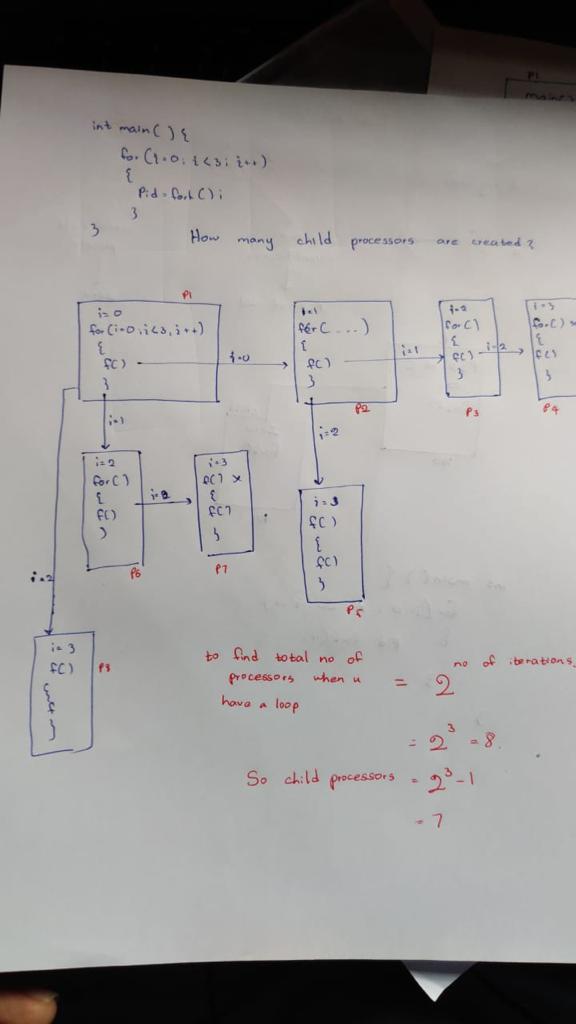 P1
int main() {
for (i=0; i<3; i++)
{
Pid = fork();
}
}
How many child processors are created?
P1
i=0
for(i=0, i<3, i++)
{
f()
}
i=0
i=1
for(...)
{
f()
}
P2
i=1
i=2
for()
{
f()
}
P3
i=2
i=3
for() x
{
f()
}
P4
i=1
i=2
for()
{
f()
}
P6
i=2
i=3
f() x
{
f()
}
P7
i=2
i=3
f()
{
f()
}
P5
i=2
i=3
f()
{
f
}
P8
to find total no of
processors when u
have a loop
= 2 no of iterations.
= 2³ = 8.
So child processors = 2³-1
= 7